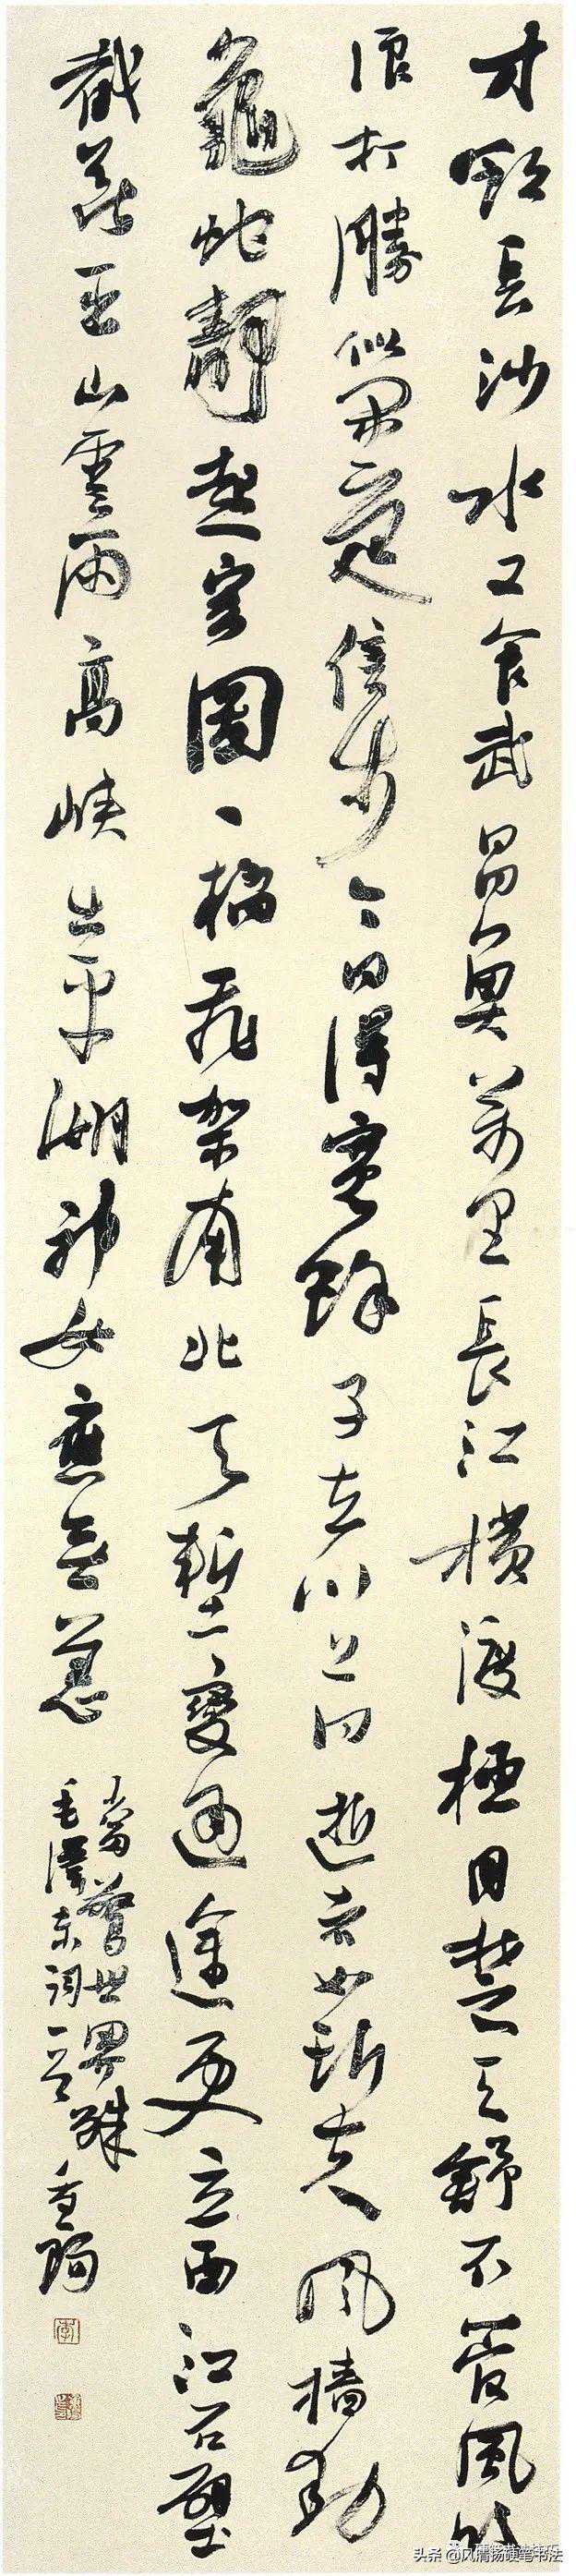 才飲長沙水又食武昌魚萬里長江橫渡極目楚天舒不管風吹
浪打勝似閑庭信步今日得寬餘子在川上曰逝者如斯夫風檣動
龜蛇靜起宏圖一橋飛架南北天塹變通途更立西江石壁
截斷巫山雲雨高峽出平湖神女應無恙
當驚世界殊
毛澤東詞一首
头条 @风清扬硬笔书法